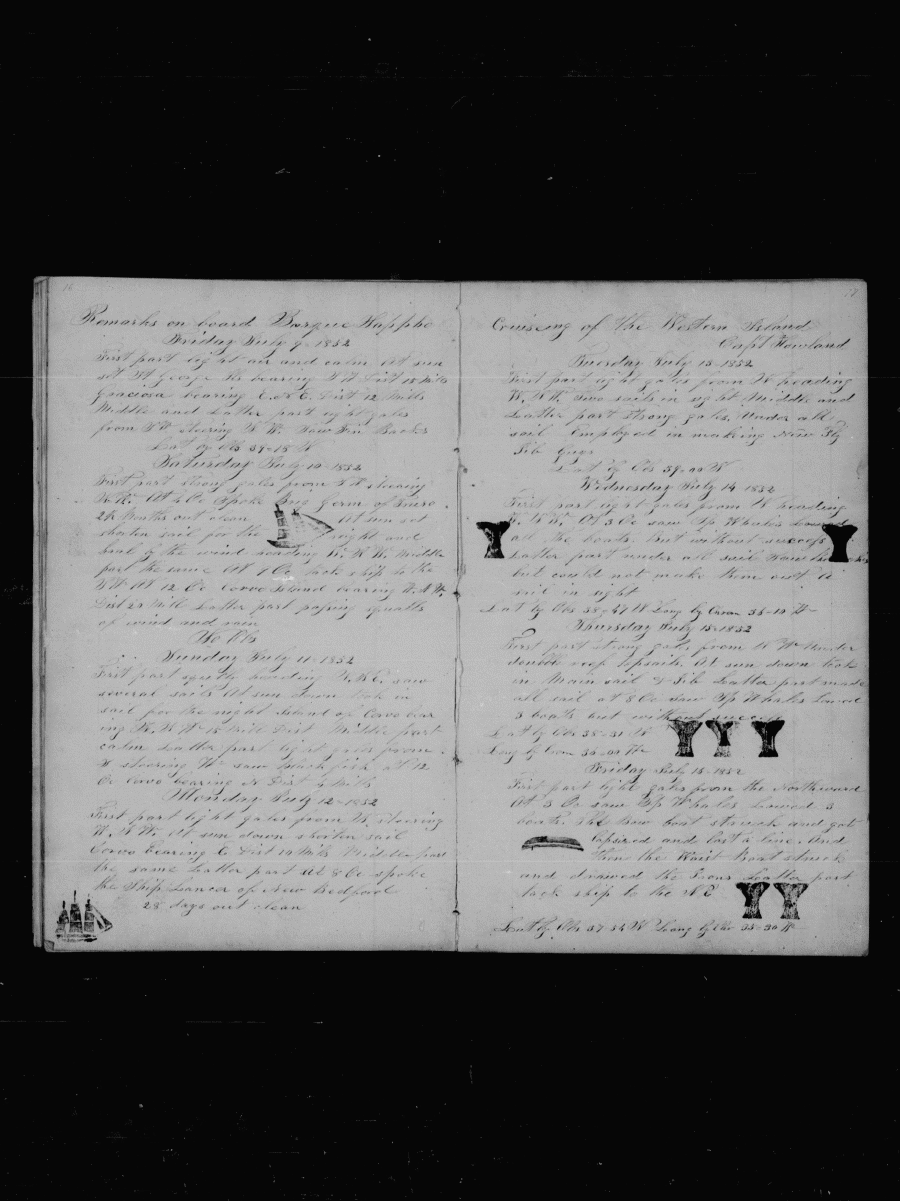 16
Remarks on board Barque Sappho
Friday July 9-1852
First part light air and calm At sun
set St George Is bearing S W Dist 15 Mils
Graciosa bearing E.N.E. Dist 12 Mils
Middle and Latter part light gales
from S W steering N.W. Saw Fin Backs
Lat by Obs 39-18 N
Saturday July 10-1852
First part strong gales from S W steering
N.W. At 4 Oc Spoke Brig Germ of Truro
24 Months out clean At sun set
shorten sail for the night and
haul of the wind heading N.W.W. Middle
part the same At 1 Oc tack ship to the
S W At 12 Oc Corvo Island bearing W.N.W.
Dist 25 Mils Latter part passing squalls
of wind and rain
No Obs
Sunday July 11-1852
First part squally heading N.N.E. saw
several sails At sun down took in
sail for the night Island of Corvo bear
ing N.N.W. 15 Mils Dist Middle part
calm Latter part light from
S steering W saw Black fish at 12
Oc Corvo bearing N Dist 4 Mils
Monday July 12-1852
First part light gales from S. steering
W.N.W. At sun down shorten sail
Corvo bearing E Dist 10 Mils Middle part
the same Latter part At 8 Oc spoke
the Ship Lancer of New Bedford
28 days out clean
17
Cruising of the Western Island
Capt Howland
Tuesday July 13-1852
First part light gales from N heading
W.N.W. two sails in sight Middle and
Latter part strong gales. Under all
sail Employed in making New Fly
Jib Guys
Lat by Obs 39-00 N
Wednesday July 14 1852
First part light gales from N heading
W.N.W. At 3 Oc saw Sp Whales Lowed
all the boats. but without success
Latter part under all sail saw
but could not make them out a
sail in sight
Lat by Obs 38-47 N Long by Cron 33-10 W
Thursday July 15-1852
First part strong gales from N W Under
double reef topsails. At sun down took
in Main sail & Jib Latter part made
all sail at 8 Oc saw Sp Whales Lowed
3 boats but without success
Lat by Obs 38-31 N
Long by Cron 34-00 W
Friday July 16-1852
First part light gales from the Northward
At 3 Oc saw Sp Whales Lowed 3
boats. The Bow boat struck and got
Capsized and lost a line. And
then the Waist Boat struck
and drawed the Irons Latter part
tack ship to the N E
Lat by Obs 37-54 N Long by Chr 33-30 W